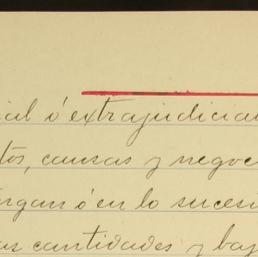 ial ó extrajudicial
tos, causas y negoc
engan ó en lo sucesi
as cantidades y baj